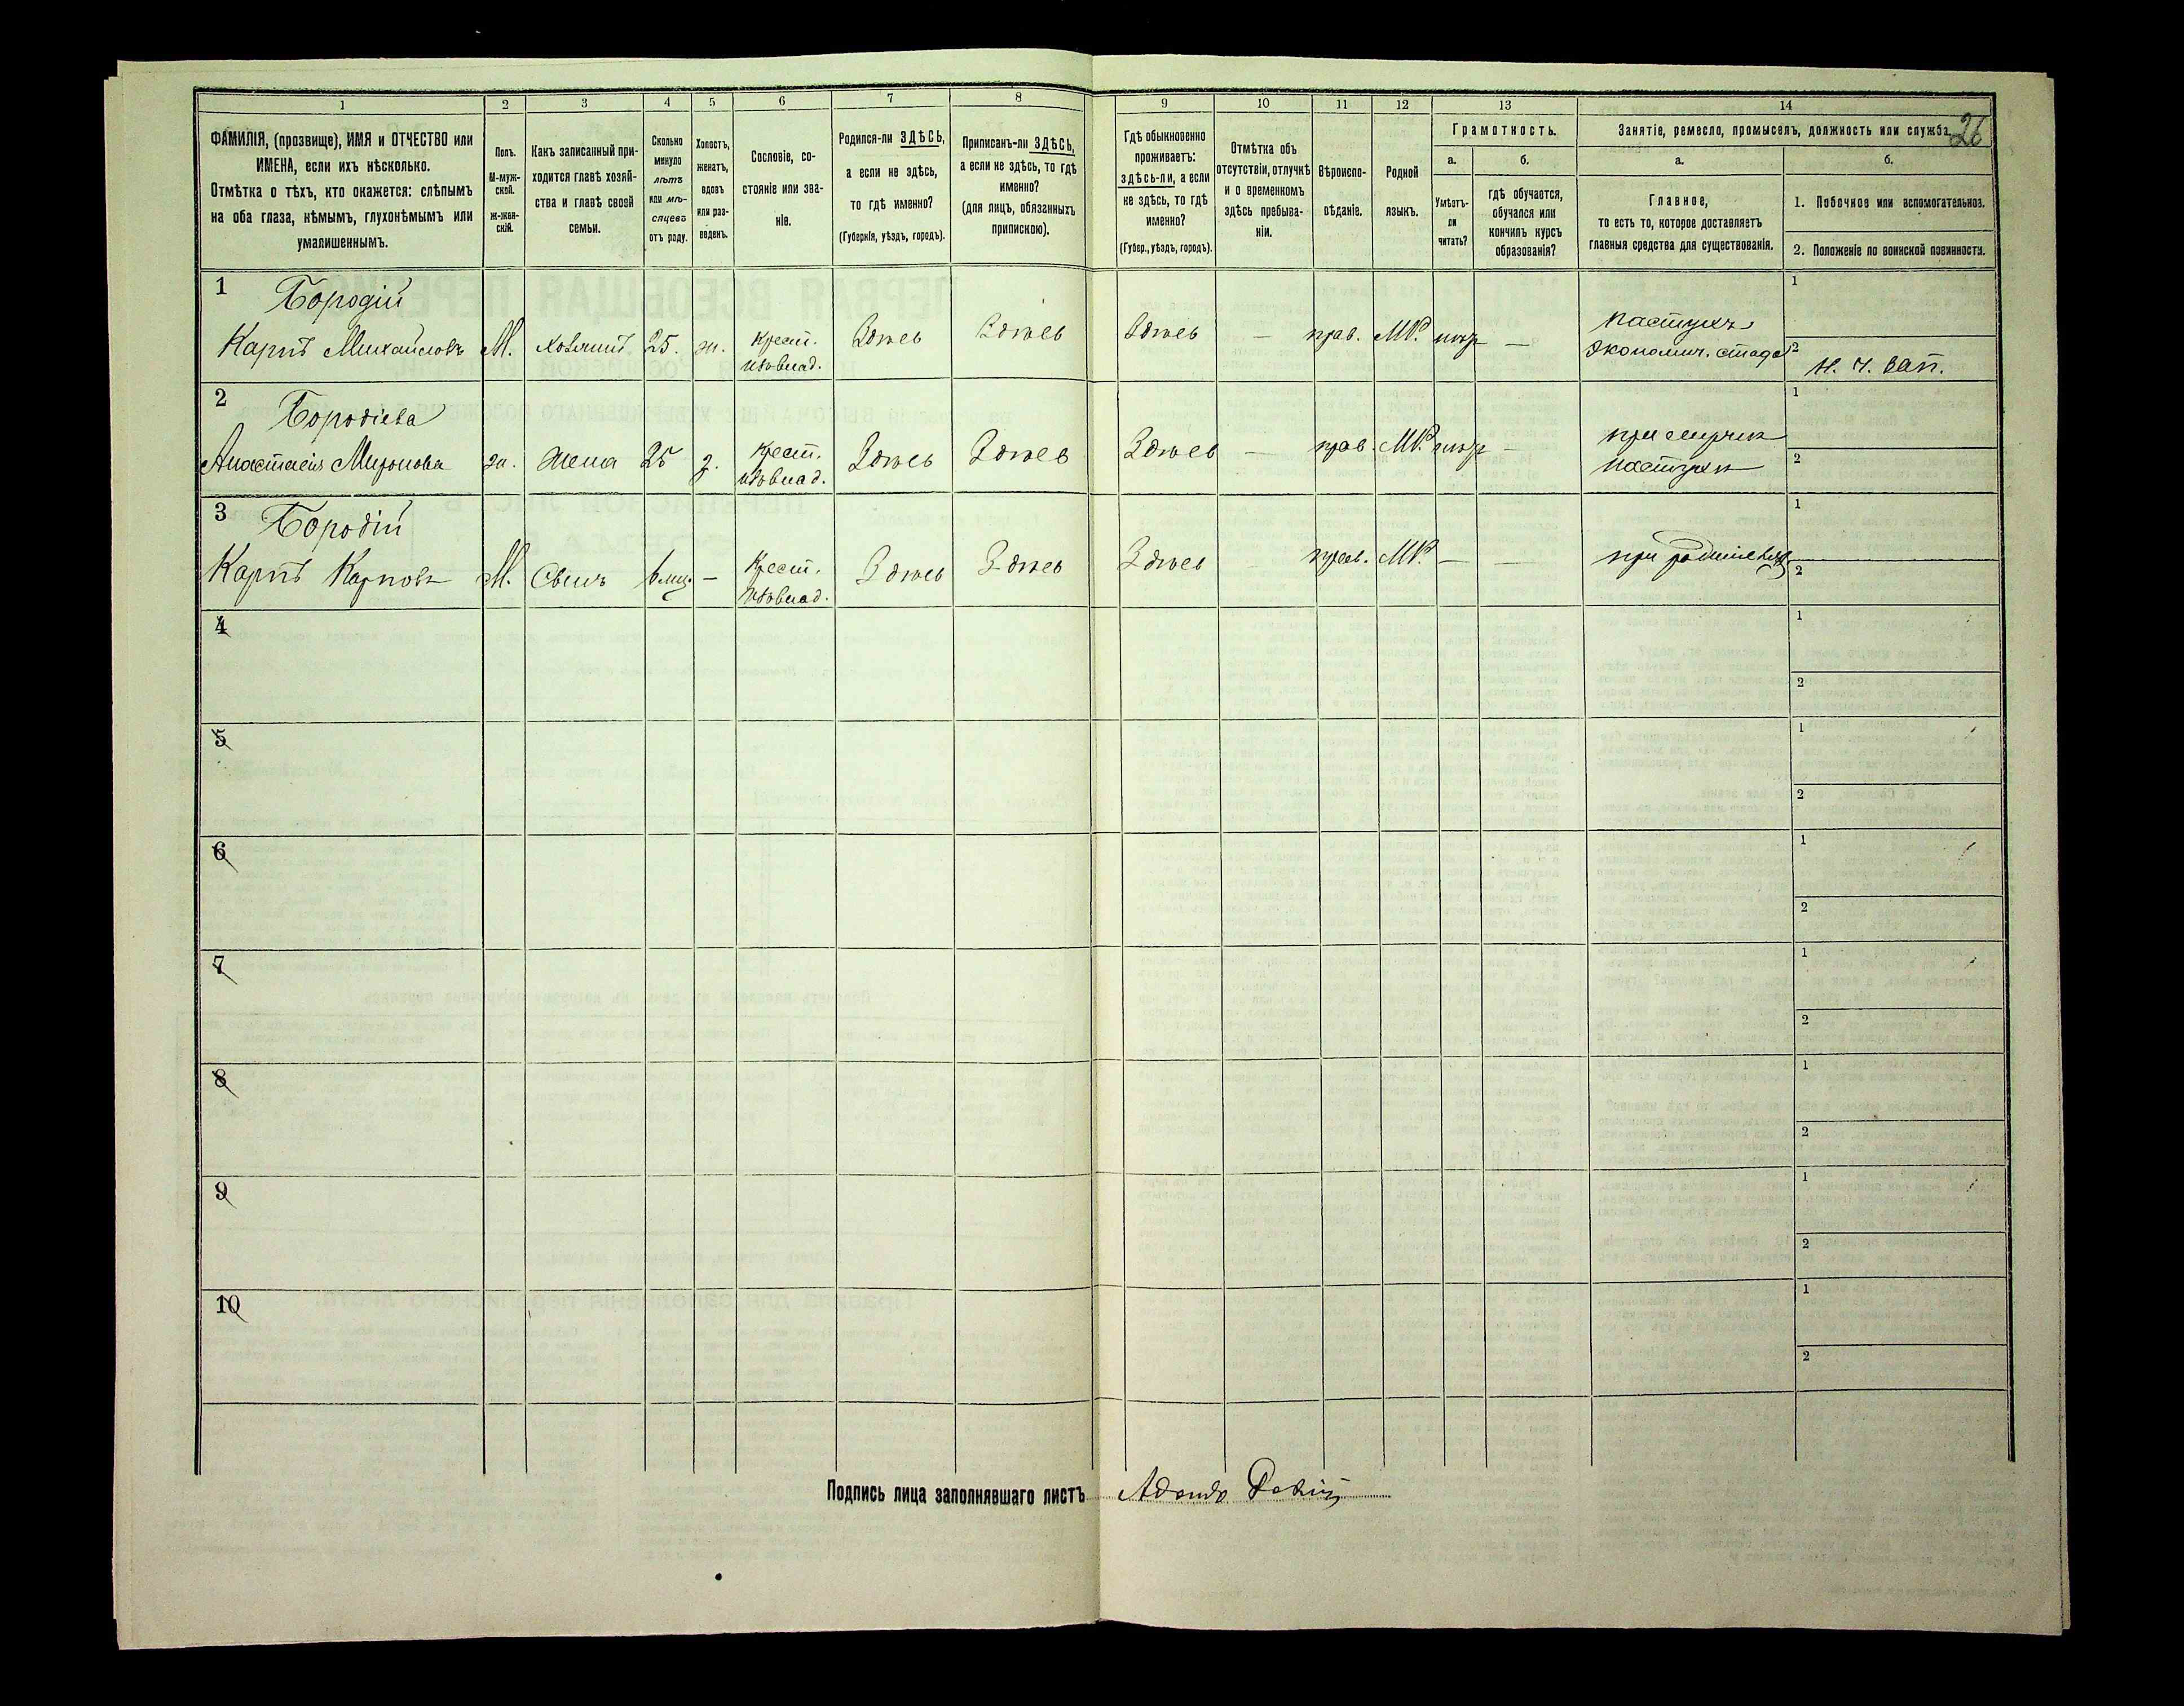 26
1 2 3 4 5 6 7 8 9 10 11 12 13 14
ФАМИЛІЯ, (прозвище), ИМЯ и ОТЧЕСТВО или
ИМЕНА, если ихъ нѣсколько.
Отмѣтка о тѣхъ, кто окажется: слѣпымъ
на оба глаза, нѣмымъ, глухонѣмымъ или
умалишеннымъ.
Полъ.
М-муж-
ской.
ж-жен-
скій.
Какъ записанный при-
ходится главѣ хозяй-
ства и главѣ своей
семьи.
Сколько
минуло
лѣтъ
или мѣ-
сяцевъ
отъ роду.
Холостъ,
женатъ,
вдовъ
или раз-
веденъ.
Сословіе, со-
стояніе или зва-
ніе.
Родился-ли ЗДѢСЬ,
а если не здѣсь,
то гдѣ именно?
(Губернія, уѣздъ, городъ).
Приписанъ-ли ЗДѢСЬ,
а если не здѣсь, то гдѣ
именно?
(для лицъ, обязанныхъ
припискою).
Гдѣ обыкновенно
проживаетъ:
здѣсь-ли, а если
не здѣсь, то гдѣ
именно?
(Губер., уѣздъ, городъ).
Отмѣтка объ
отсутствіи, отлучкѣ
и о временномъ
здѣсь пребыва-
ніи.
Вѣроиспо-
вѣданіе.
Родной
языкъ.
Грамотность.
а.
Умѣетъ-
ли
читать?
б.
гдѣ обучается,
обучался или
кончилъ курсъ
образованія?
Занятіе, ремесло, промыселъ, должность или служба.
а.
Главное,
то есть то, которое доставляетъ
главныя средства для существованія.
б.
1. Побочное или вспомогательное.
2. Положеніе по воинской повинности.
1 Бородій
Карпъ Михайловъ М. Хозяинъ 25. ж. Крест. Здѣсь Здѣсь Здѣсь — прав. МР. —
изъ влад.
пастухъ
экономич. стада
1
2 н. ч. зап.
2 Бородіева
Анастасія Миронова ж. Жена 25 з. Крест. Здѣсь Здѣсь Здѣсь — прав. МР. —
изъ влад.
при
пастухѣ
1
2
3 Бородій
Карпъ Карповъ М. Сынъ 6 мц. — Крест. Здѣсь Здѣсь Здѣсь — прав. МР. — —
изъ влад.
при родителяхъ
1
2
4 1
2
5 1
2
6 1
2
7 1
2
8 1
2
9 1
2
10 1
2
Подпись лица заполнявшаго листъ